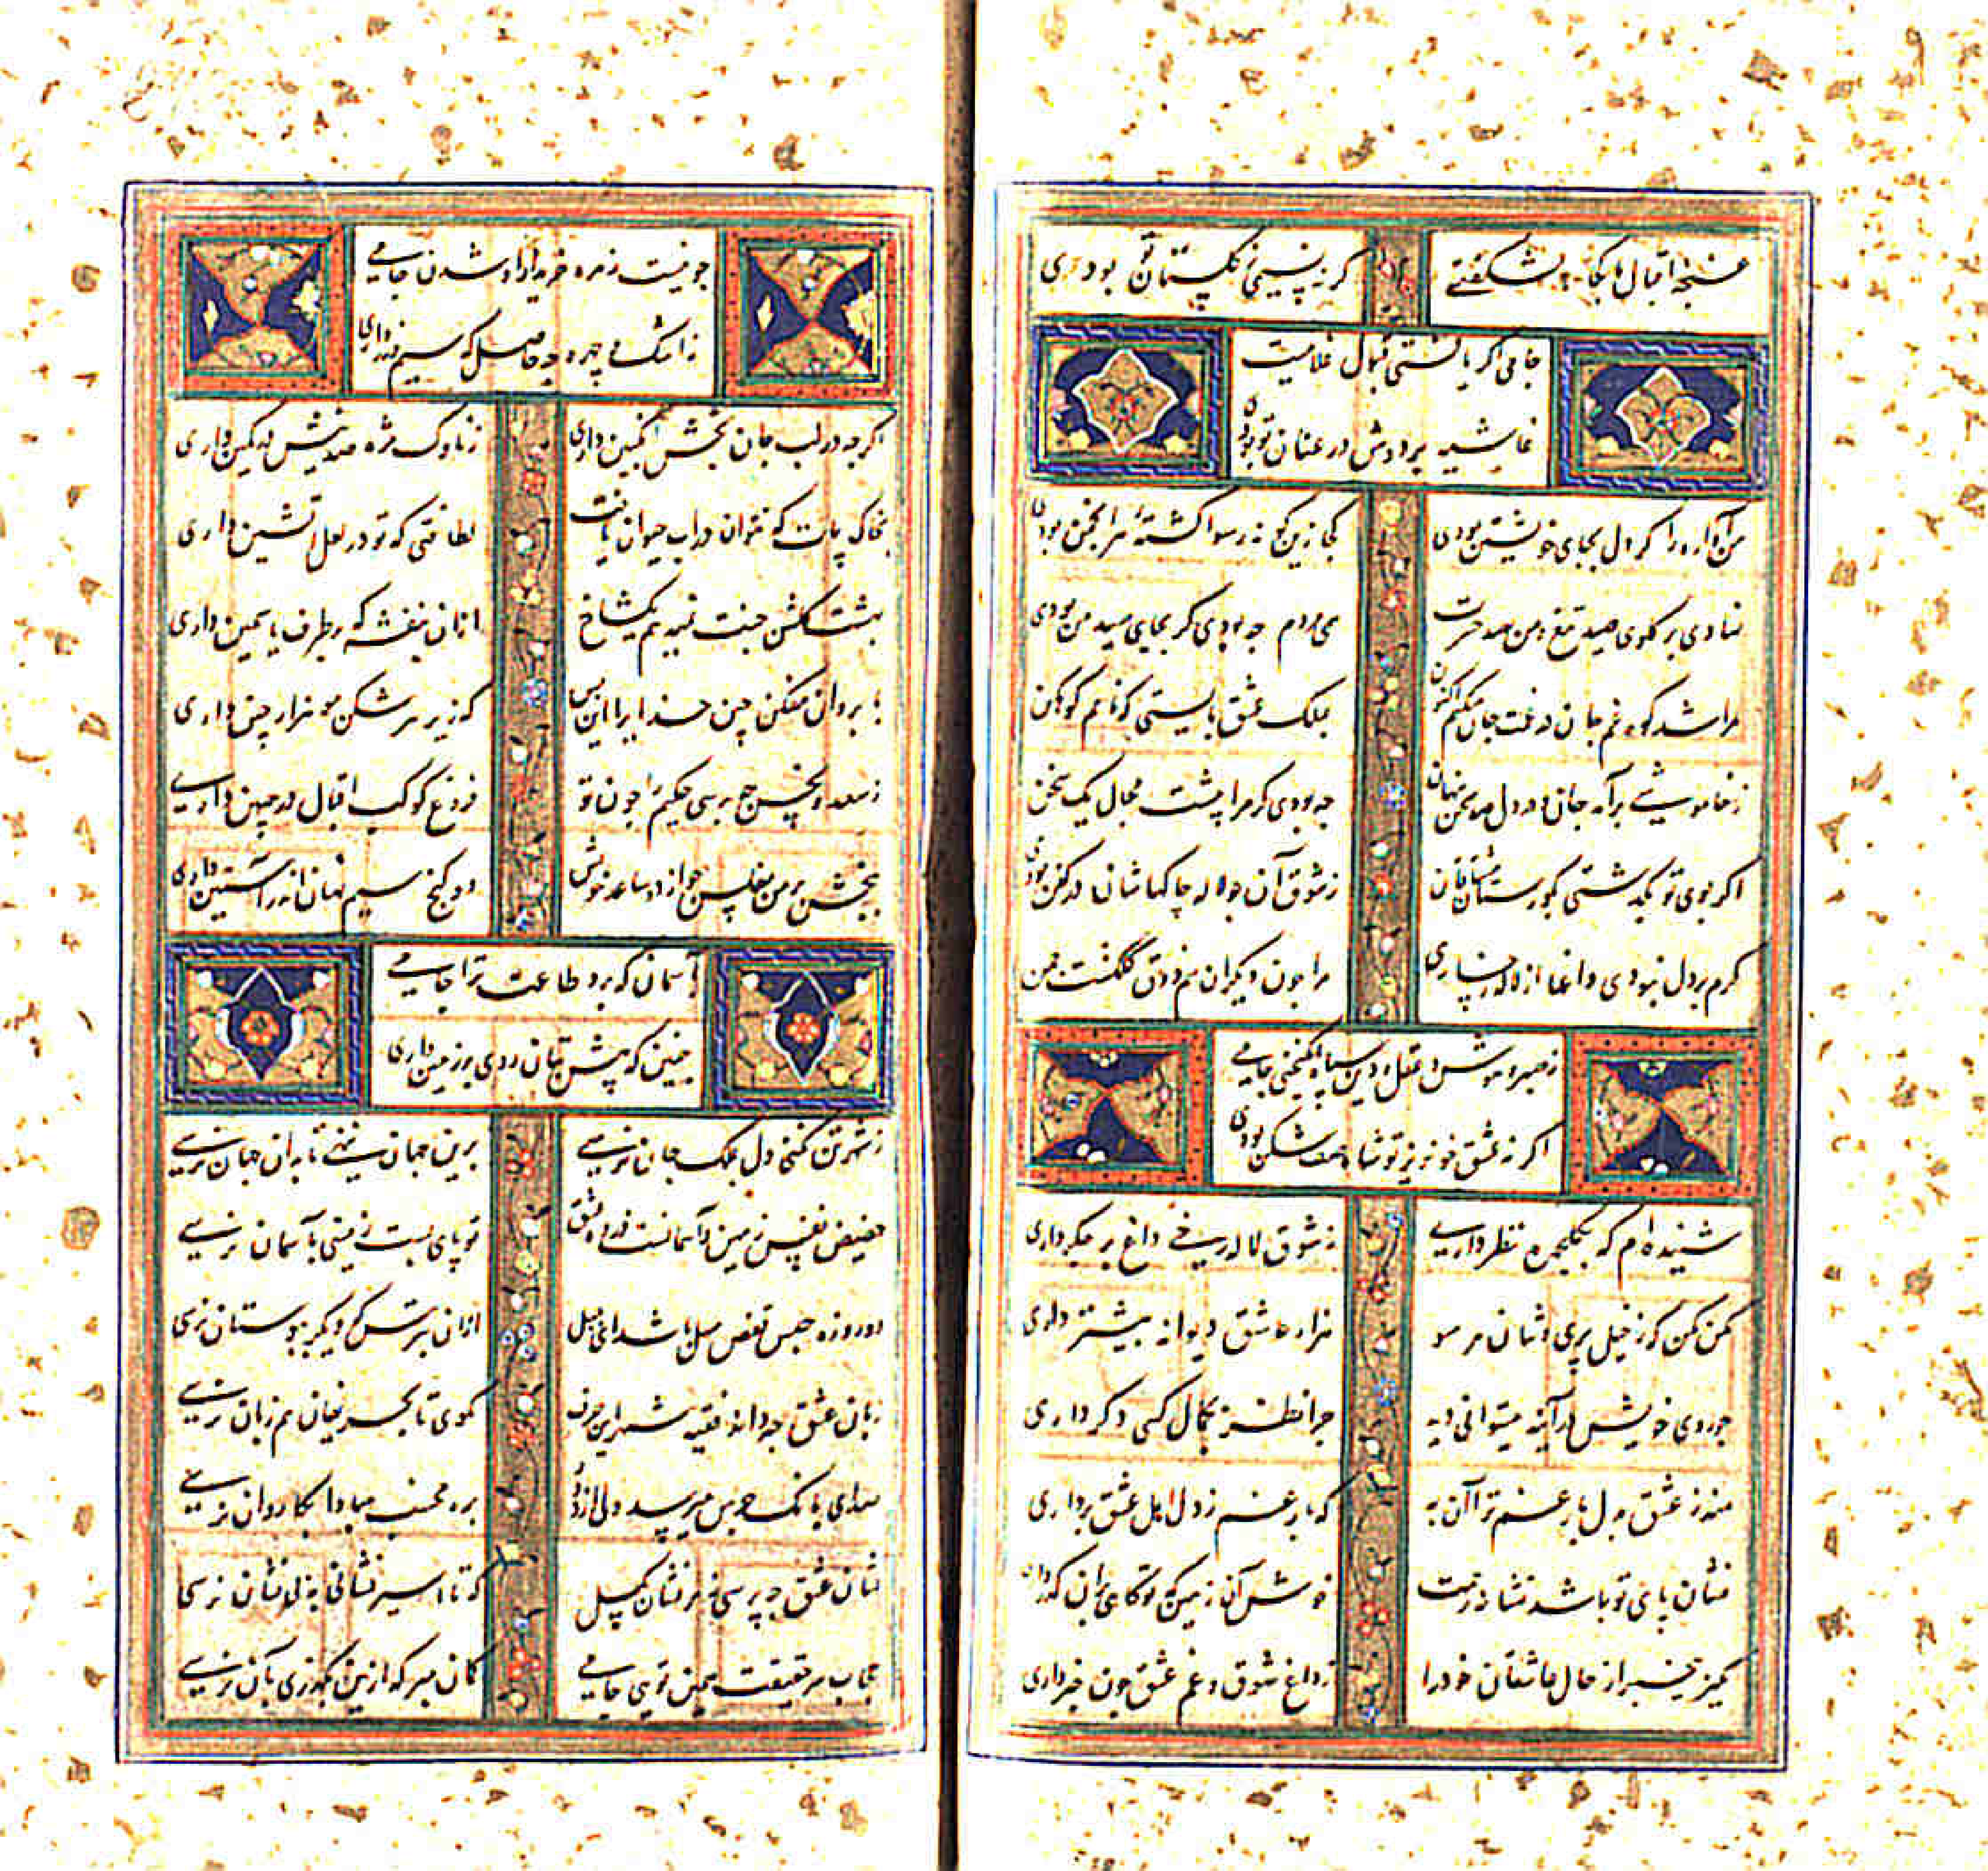 غنچه اقبال ما کجا بشکفتی گر نه نسیمی ز گلستان تو بودی
جامی اگر یافتی قبول غلامیت
غاشیه بر دوش در عنان تو بودی
من آواره را گر دل بجای خویشتن بودی کجا زین گونه رسوا گشته هر انجمن بودی
نهادی بر گلوی صید تیغ و من صد حسرت می مردم چه بودی گر بجای صید من بودی
مرا شد کوه غم جان در غمت جان میکنم اکنون بملک عشق بایستی که نامم کوهکن بودی
ز خاموشی برآمد جان و در دل صد سخن پنهان چه بودی گر مرا پیشت مجال یک سخن بودی
اگر بوی تو بگذشتی بگورستان مشتاقان ز شوق آن چو لاله چاکها شان در کفن بودی
گرم بر دل نبودی داغها از لاله رخساری مرا چون دیگران هم ذوق گلگشت چمن
ز صبر و هوش و عقل و دین سپاه انگیختی جامی
اگر نه عشق خونریز تو شاه صف شکن بودی
شنیده ام که بگلچهره نظر داری ز شوق لاله رخی داغ بر جگر داری
مکن مکن که ز خیل پری وشان هر سو هزار عاشق دیوانه بیشتر داری
چو روی خویش در آینه میتوانی دید چرا نظر بجمال کسی دگر داری
منه ز عشق بدل بار غم ترا آن به که بار غم ز دل اهل عشق برداری
نشان پای تو باشد نشانه رحمت خوش آن زمین که تو گاهی بران گذر داری
کمینه از حال عاشقان خود را ز داغ شوق و غم عشق چون خبر داری
چو نیست زهره خریدار او شدن جامی
ز اشک و چهره چه حاصل که سیم و زر داری
اگر چه در لب جان بخش انگبین داری ز ناوک مژه صد نیش در کمین داری
بخاک پات که نتوان در آب حیوان یافت لطافتی که تو در لعل آتشین داری
بهشت گلشن جنت نمیدهم یک شاخ ازان بنفشه که بر طرف یاسمین داری
بابروان مفکن چین خدایرا این بس که زیر هر شکن مو هزار چین داری
ز سعد و نحس چه پرسی حکیم را چو تو فروغ کوکب اقبال در جبین داری
ببخش بر من مفلس چو از دو ساعد خویش دو گنج سیم نهان اندر آستین داری
بآسمان که برد طاعت ترا جامی
چنین که پیش بتان روی بر زمین داری
ز شهر تن نکنی دل بملک جان نرسی برین جهان ننهی پا بدان جهان نرسی
حضیض نفس زمین و آسمانست ذروه عشق تو پای بست زمینی بآسمان نرسی
دو روزه حبس قفس سهل باشد ای بلبل ازان بترس که دیگر ببوستان نرسی
زبان عشق چه داند فقیه شهر این حرف مگوی تا بحریفان هم زبان نرسی
صدای بانگ جرس میرسد ولی از دور بره مخسب مبادا بکاروان نرسی
نشان عشق چه پرسی ز هر نشان بگسل که تا اسیر نشانی به بی نشان نرسی
حجاب سر حقیقت همین تویی جامی گمان مبر که ازین نگذری بآن نرسی